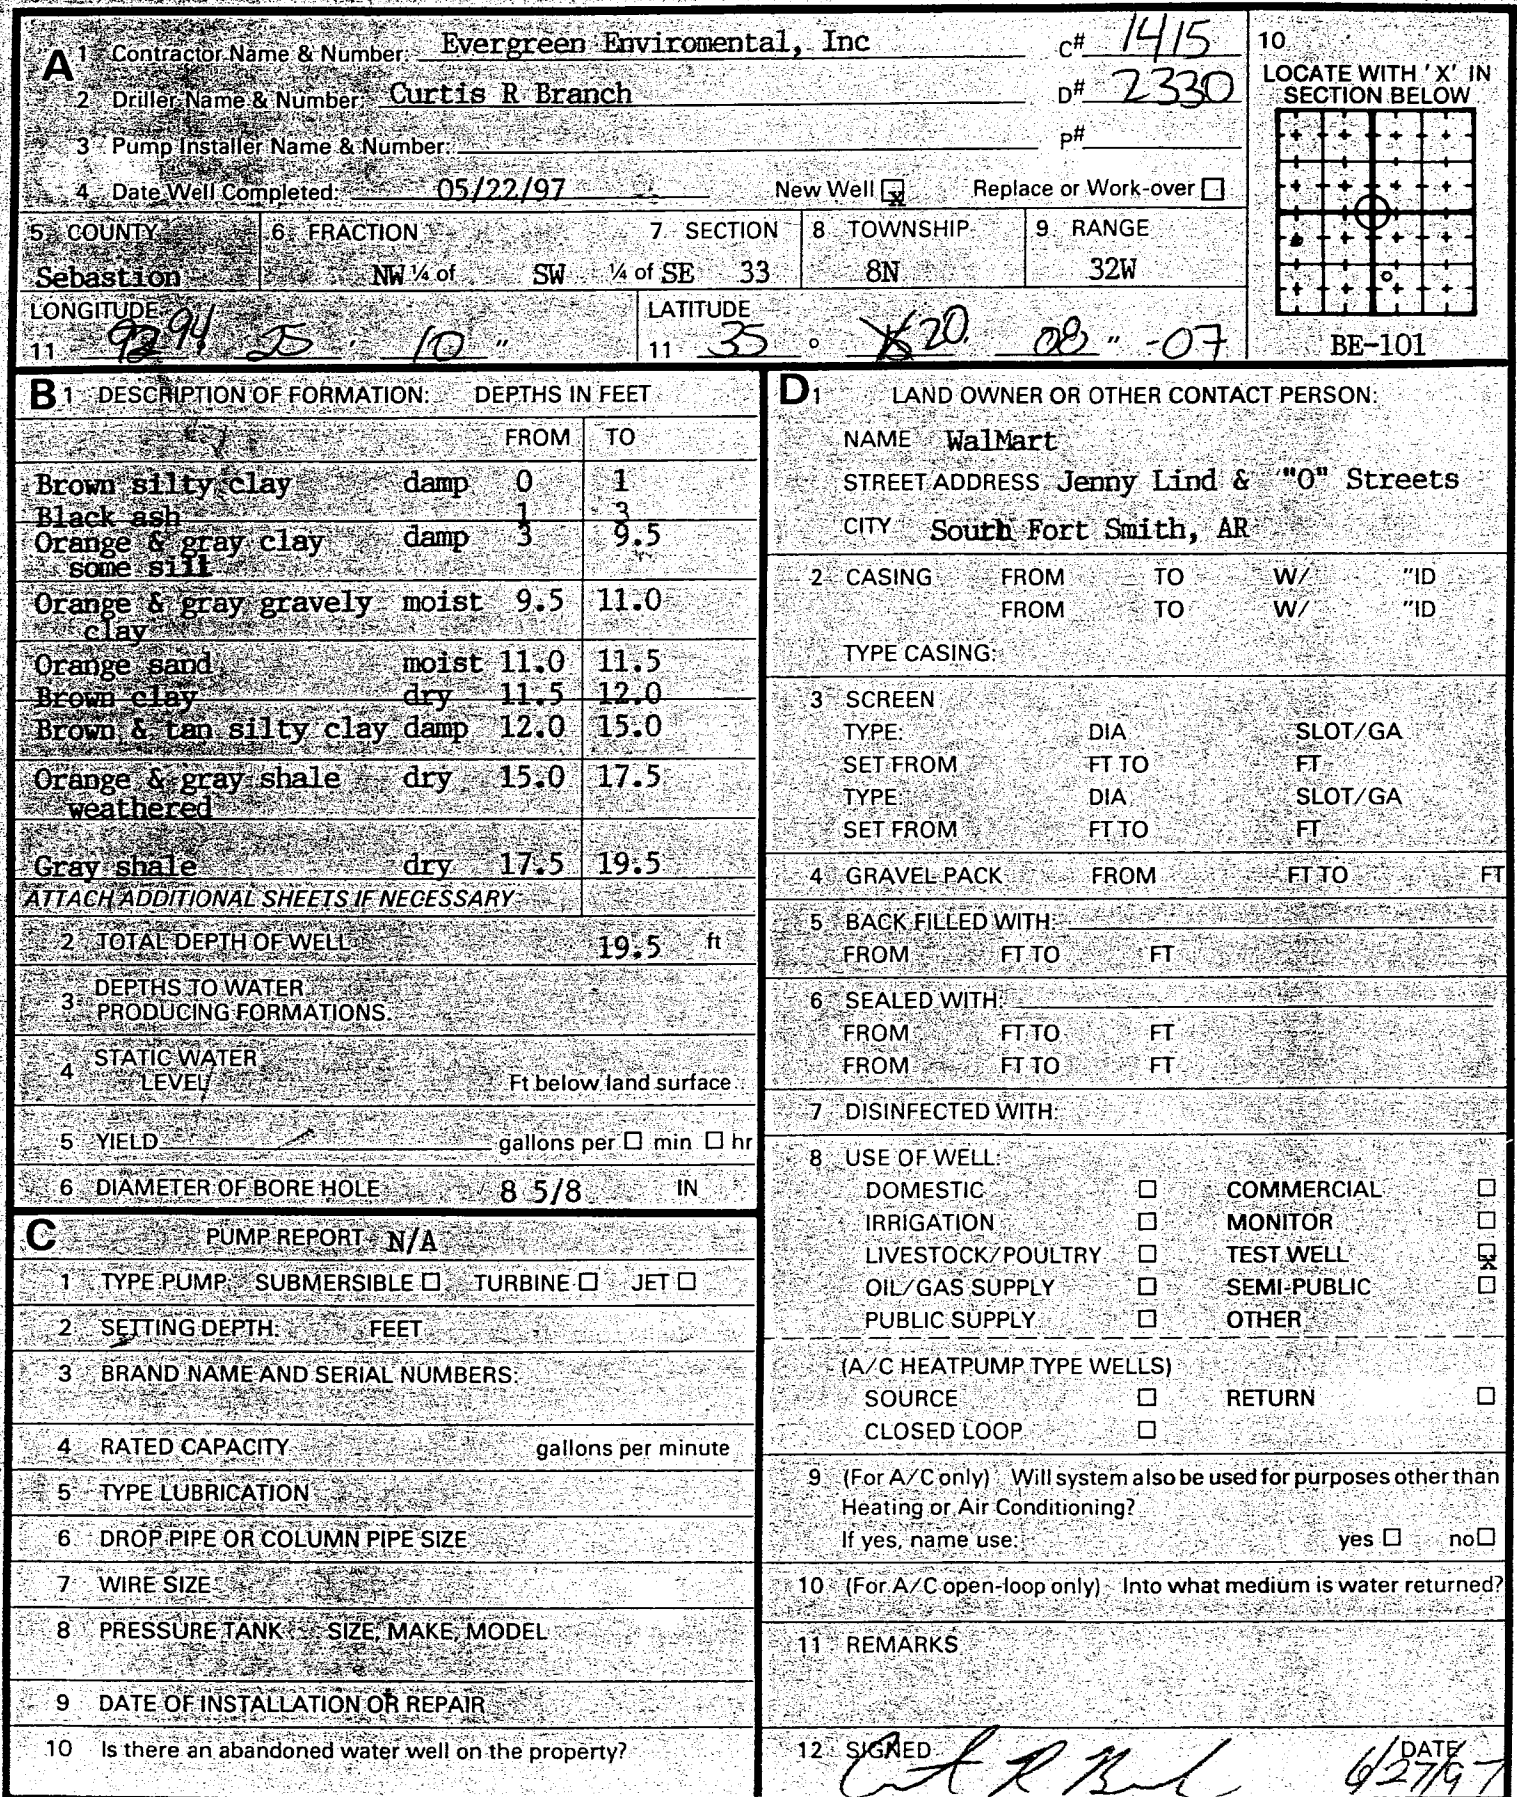 A 1 Contractor Name & Number: Evergreen Enviromental, Inc C# 1415
2 Driller Name & Number: Curtis R Branch D# 2330
3 Pump Installer Name & Number: P#
4 Date Well Completed: 05/22/97 New Well x Replace or Work-over
10
LOCATE WITH 'X' IN
SECTION BELOW
BE-101
5 COUNTY 6 FRACTION 7 SECTION 8 TOWNSHIP 9 RANGE
Sebastion NW ¼ of SW ¼ of SE 33 8N 32W
LONGITUDE LATITUDE
11 92 94 25 ' 10 " 11 35 ° 20 08 " -07
B 1 DESCRIPTION OF FORMATION: DEPTHS IN FEET
FROM TO
Brown silty clay damp 0 1
Black ash 1 3
Orange & gray clay damp 3 9.5
some silt
Orange & gray gravely moist 9.5 11.0
clay
Orange sand moist 11.0 11.5
Brown clay dry 11.5 12.0
Brown & tan silty clay damp 12.0 15.0
Orange & gray shale dry 15.0 17.5
weathered
Gray shale dry 17.5 19.5
ATTACH ADDITIONAL SHEETS IF NECESSARY
2 TOTAL DEPTH OF WELL 19.5 ft
3 DEPTHS TO WATER
PRODUCING FORMATIONS.
4 STATIC WATER
LEVEL Ft below land surface
5 YIELD gallons per min hr
6 DIAMETER OF BORE HOLE 8 5/8 IN
C PUMP REPORT N/A
1 TYPE PUMP SUBMERSIBLE TURBINE JET
2 SETTING DEPTH: FEET
3 BRAND NAME AND SERIAL NUMBERS:
4 RATED CAPACITY gallons per minute
5 TYPE LUBRICATION
6 DROP PIPE OR COLUMN PIPE SIZE
7 WIRE SIZE
8 PRESSURE TANK SIZE, MAKE, MODEL
9 DATE OF INSTALLATION OR REPAIR
10 Is there an abandoned water well on the property?
D 1 LAND OWNER OR OTHER CONTACT PERSON:
NAME WalMart
STREET ADDRESS Jenny Lind & "O" Streets
CITY South Fort Smith, AR
2 CASING FROM TO W/ "ID
FROM TO W/ "ID
TYPE CASING:
3 SCREEN
TYPE: DIA SLOT/GA
SET FROM FT TO FT
TYPE: DIA SLOT/GA
SET FROM FT TO FT
4 GRAVEL PACK FROM FT TO FT
5 BACK FILLED WITH:
FROM FT TO FT
6 SEALED WITH:
FROM FT TO FT
FROM FT TO FT
7 DISINFECTED WITH:
8 USE OF WELL:
DOMESTIC COMMERCIAL
IRRIGATION MONITOR
LIVESTOCK/POULTRY TEST WELL x
OIL/GAS SUPPLY SEMI-PUBLIC
PUBLIC SUPPLY OTHER
(A/C HEATPUMP TYPE WELLS)
SOURCE RETURN
CLOSED LOOP
9 (For A/C only) Will system also be used for purposes other than
Heating or Air Conditioning?
If yes, name use: yes no
10 (For A/C open-loop only) Into what medium is water returned?
11 REMARKS
12 SIGNED Curt R Branch DATE 6/27/97